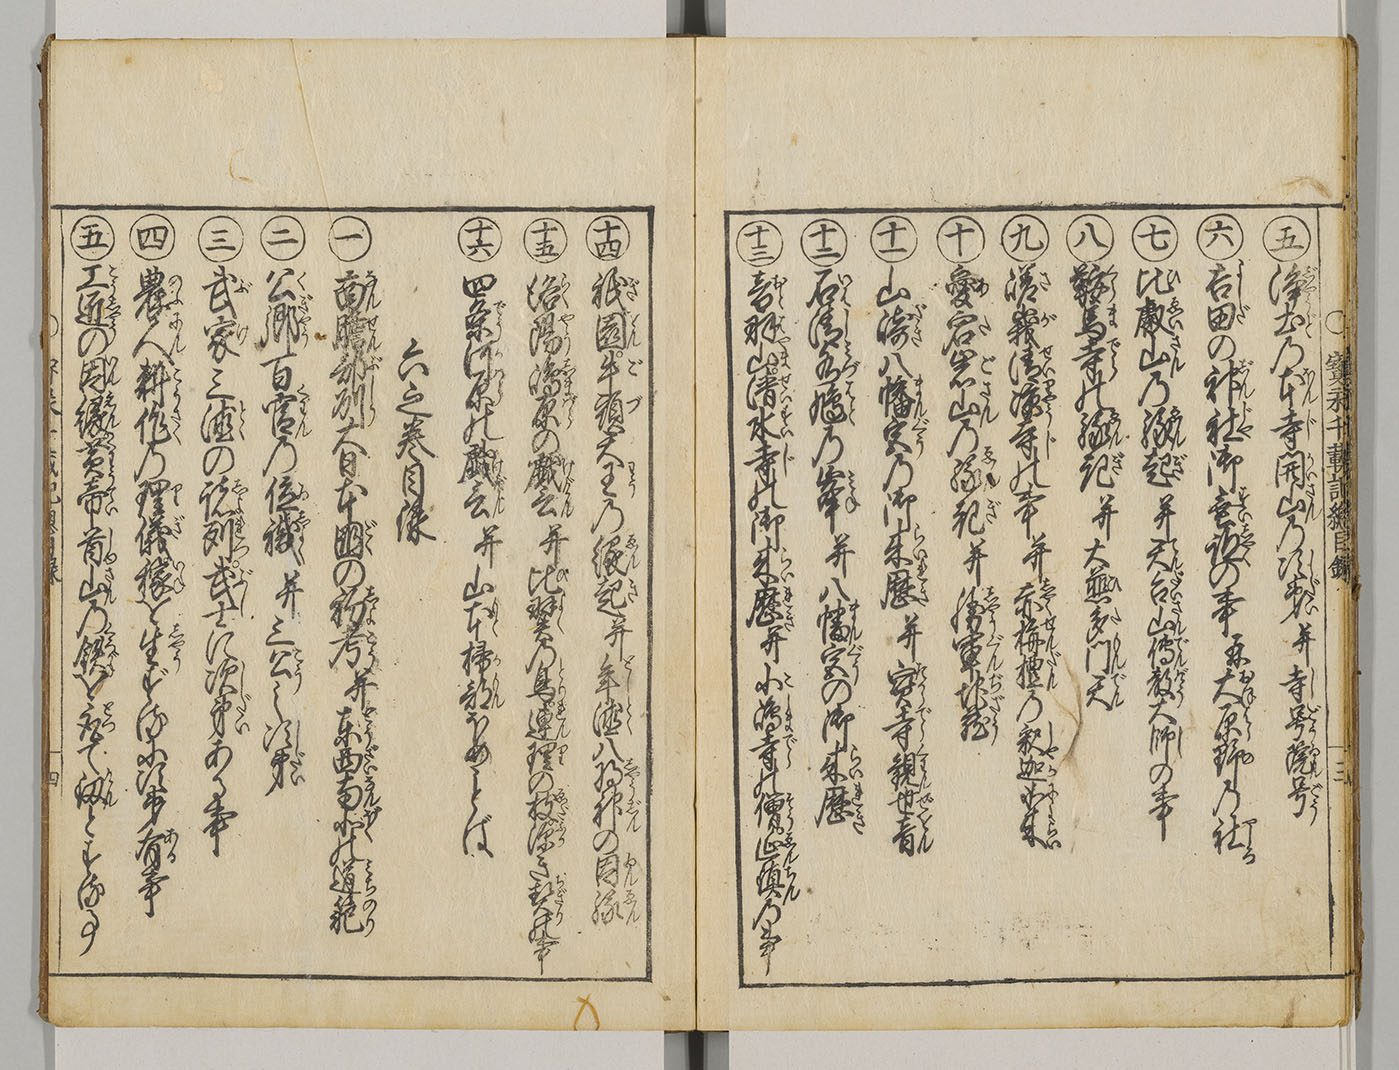 五 浄土乃本寺開山乃次第并寺号院号
六 吉田の神社御託の事并大原野乃社
七 比叡山乃縁起并天台山傳教大師の事
八 鞍馬寺の縁起并大悲多門天
九 嵯峨清凉寺の事并赤栴檀乃釈迦如来
十 愛宕山乃縁起并勝軍地蔵
十一 山崎八幡宮乃御来歴并宝寺観世音
十二 石清水鳩乃峯并八幡宮の御来歴
十三 音羽山清水寺の御来歴并小嶋寺の僧延鎮乃事
十四 祇園牛頭天王乃縁起并年徳八将神の因縁
十五 洛陽嶋原の戯云并比翼乃鳥連理の枝深き契の事
十六 四条河原の戯云并山本掃部ほめことば
六之巻目録
一 南贍部州大日本国の初考并東西南北の道範
二 公卿百官乃位職并三公之次第
三 武家三徳の諸列武士に次第ある事
四 農人耕作乃理儀稼を生ずる次第有事
五 工匠の因縁黄帝首山乃鉄を取て釼とする事